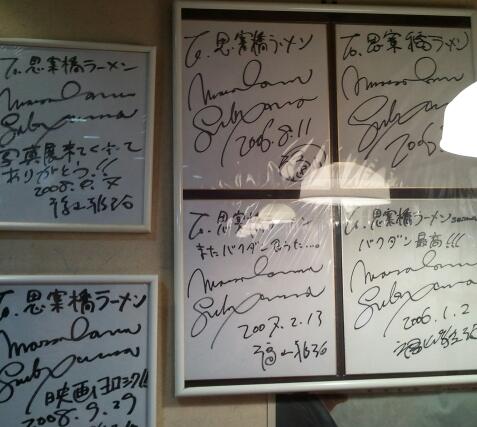 To. 思案橋ラーメン
Masaharu
Fukuyama
写真展来てくれて
ありがとう!!
To. 思案橋ラーメン
Masaharu
Fukuyama
映画もヨロシク!!
2008.9.29
To. 思案橋ラーメン
Masaharu
Fukuyama
2006.8.11
To. 思案橋ラーメン
Masaharu
Fukuyama
2006.
To. 思案
またバクダン食うた…。
Masaharu
Fukuyama
2007.2.13
福山雅治
To. 思案橋ラーメン
バクダン 最高!!!
Masaharu
Fukuyama
2006.1.2
福山雅治